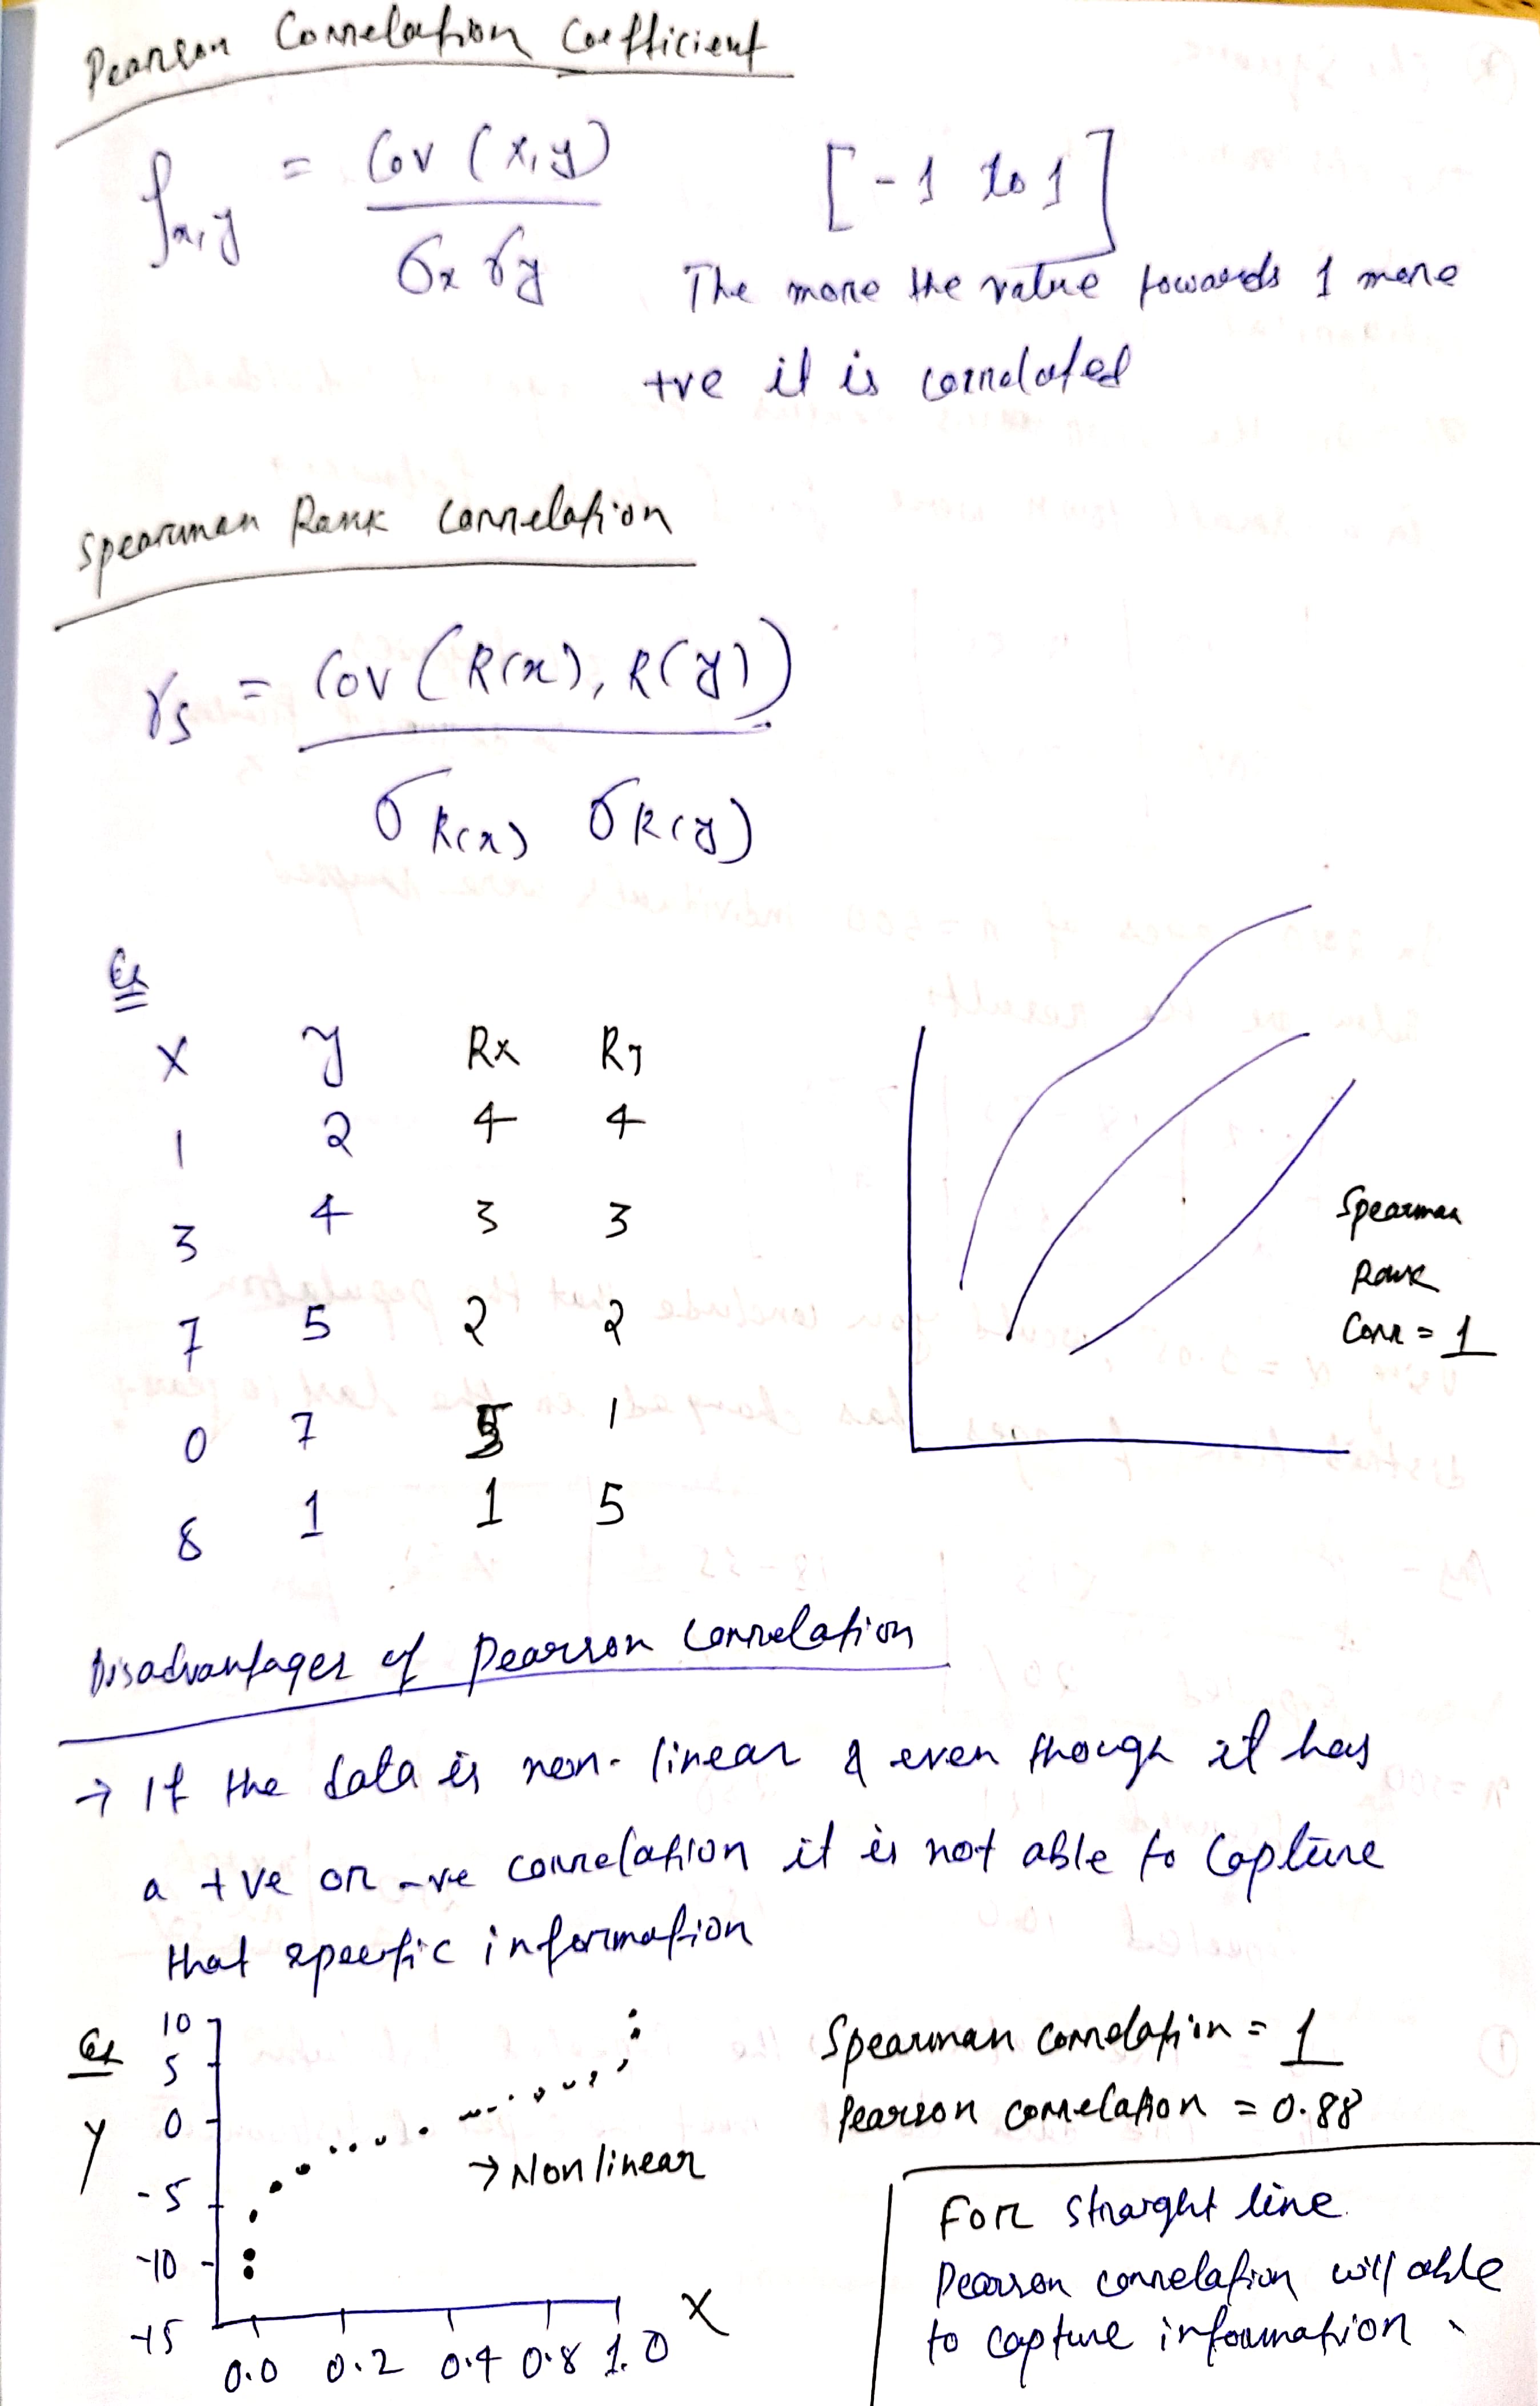 Pearson Correlation Coefficient
ρx,y = Cov (x,y) / σx σy
[-1 to 1]
The more the value towards 1 more
+ve it is correlated
Spearman Rank Correlation
rs = Cov (R(x), R(y)) / σR(x) σR(y)
Ex
X y Rx Ry
1 2 4 4
3 4 3 3
7 5 2 2
0 7 5 1
8 1 1 5
Spearman
Rank
Corr = 1
Disadvantages of Pearson Correlation
→ If the data is non-linear & even though it has
a +ve or -ve correlation it is not able to Capture
that specific information
Ex
Y
10
5
0
-5
-10
-15
→ Non linear
0.0 0.2 0.4 0.8 1.0
X
Spearman correlation = 1
Pearson correlation = 0.88
For straight line
Pearson correlation will able
to capture information